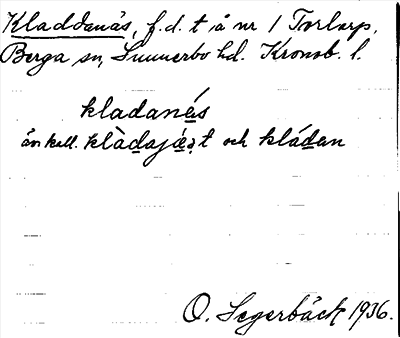 Kladdanäs, f.d. t å nr 1 Torlarp,
Berga sn, Sunnerbo hd. Kronob. l.
kladanás
även kall. klàdajá̤ət och kládan
O. Segerbäck 1936.